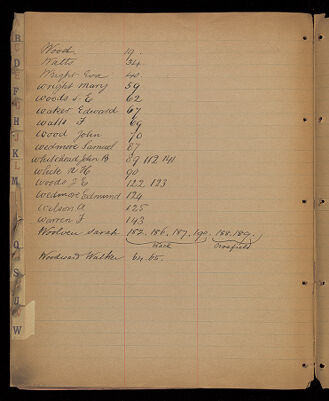 B
D
F
H
J
K
L
M
O
Q
S
U
W
Wood 19.
Watts 34
Wright Eva 40
Wright Mary 59
Woods S E 62
Waker Edward 67
Watts F 69
Wood John 70
Wedmore Samuel 87
Whitehead John B 89 112 141
White N H 90
Woods J E 122, 123
Wedmore Edmund 124
Wilson A 125
Warren F 143
Woolven Sarah 182. 186. 187. 190. 188. 189.
Woodward Walker 64. 65.